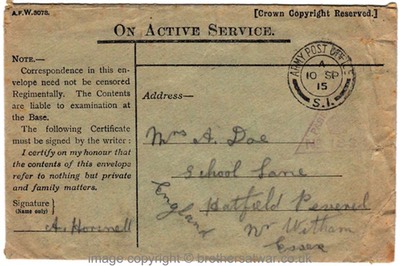 A.F.W.3078.
[Crown Copyright Reserved.]
ON ACTIVE SERVICE.
NOTE.—
Correspondence in this en-
velope need not be censored
Regimentally. The Contents
are liable to examination at
the Base.
The following Certificate
must be signed by the writer :
I certify on my honour that
the contents of this envelope
refer to nothing but private
and family matters.
Signature
(Name only)
A. Hovenell
ARMY POST OFFICE
A
10 SP
15
S.1.
Address—
Mrs A. Doe
School Lane
Hatfield Peverel
Nr Witham
Essex
England
image copyright © brothersatwar.co.uk